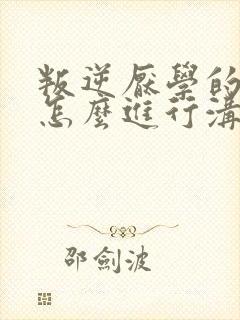 叛逆厭學的
怎麼進行溝
邵劍波